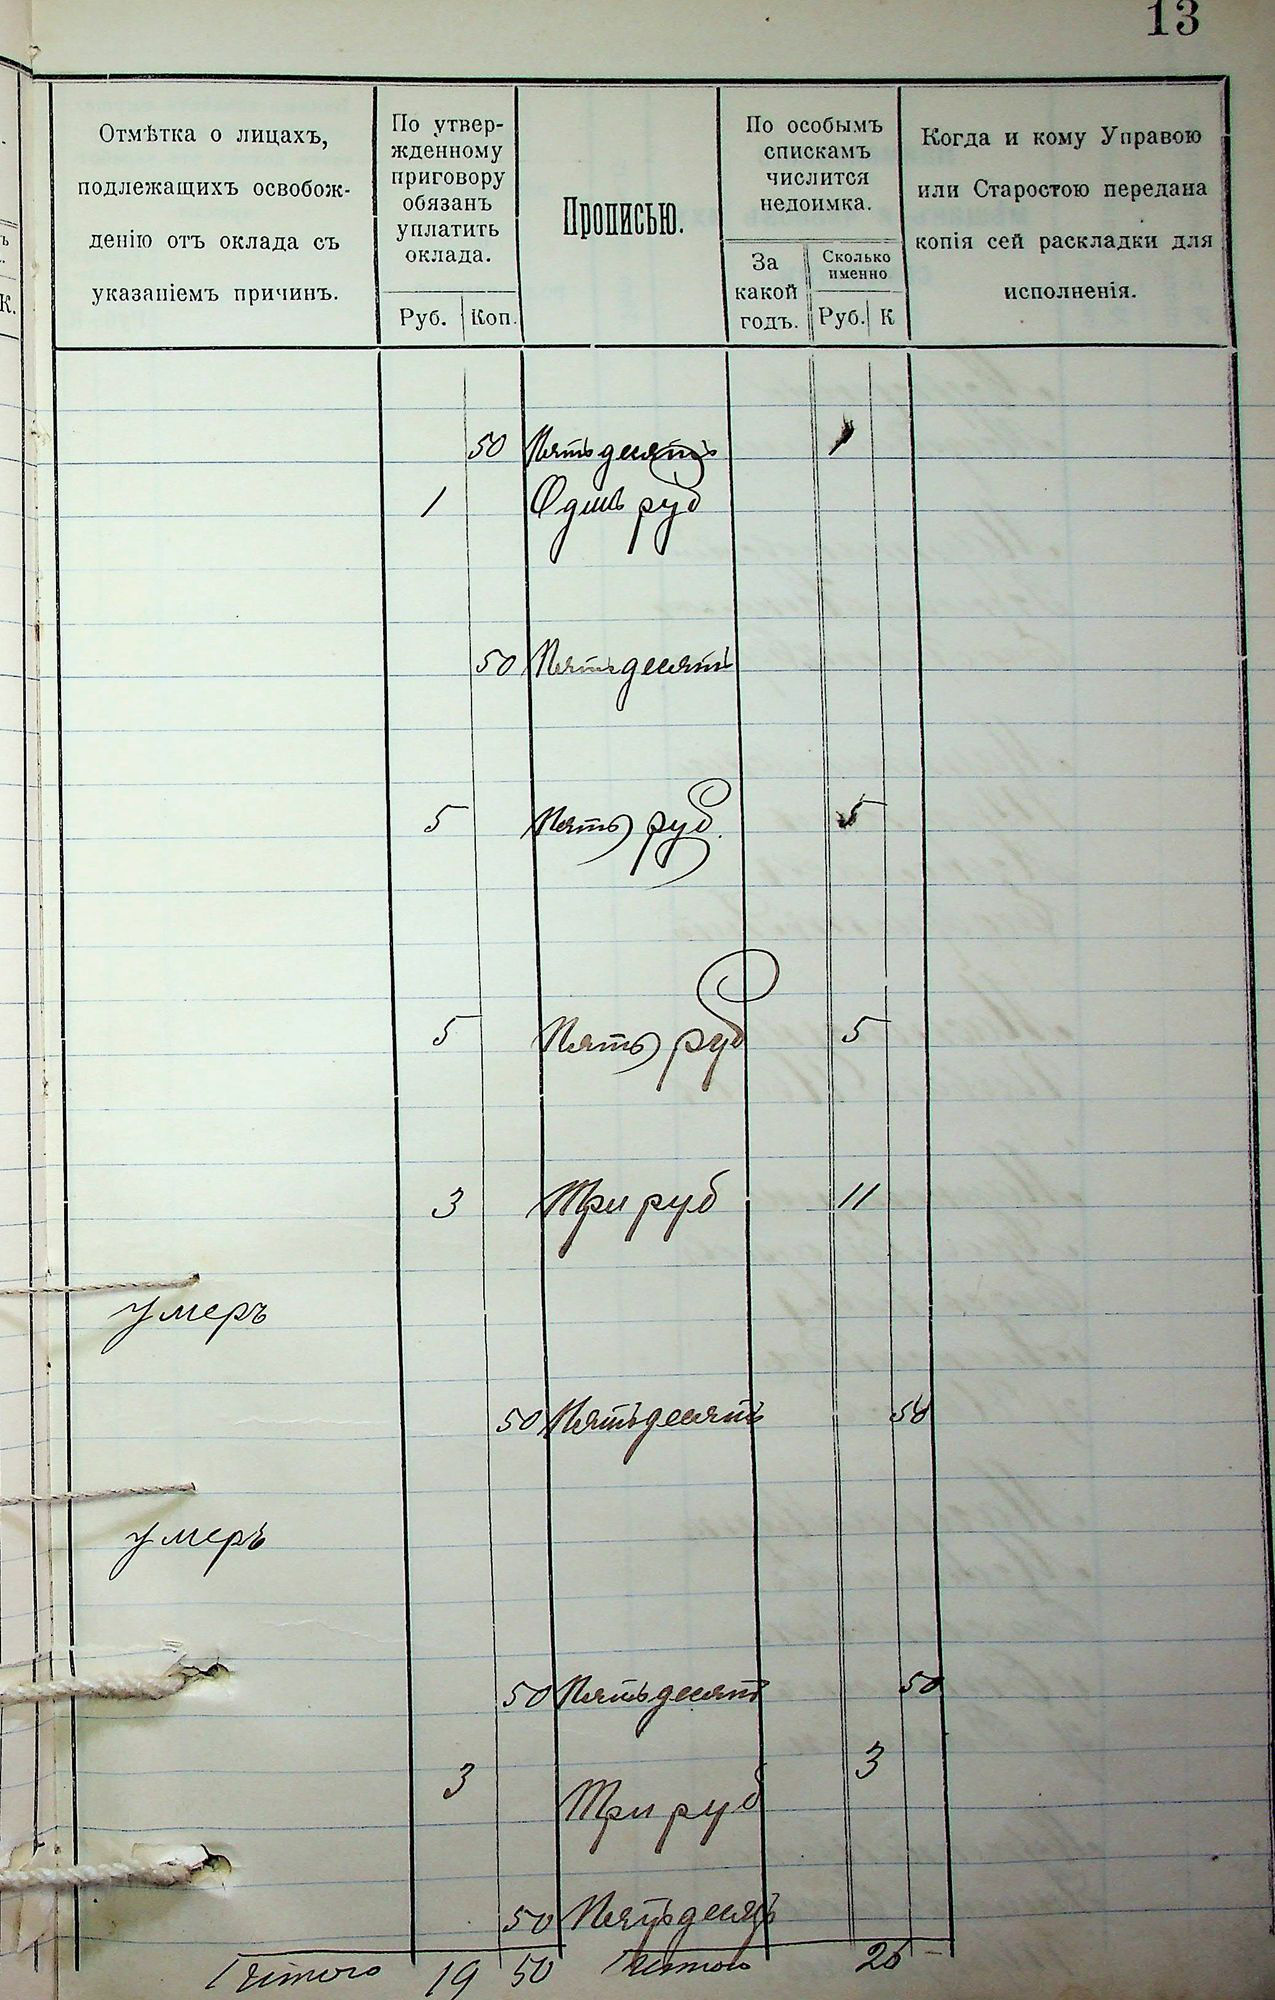 13
Отмѣтка о лицахъ,
подлежащихъ освобож-
денію отъ оклада съ
указаніемъ причинъ.
По утвер-
жденному
приговору
обязанъ
уплатить
оклада.
Руб. Коп.
Прописью.
По особымъ
спискамъ
числится
недоимка.
За
какой
годъ.
Сколько
именно
Руб. К
Когда и кому Управою
или Старостою передана
копія сей раскладки для
исполненія.
К.
50 Пятьдесятъ 1
1 Одинъ руб
50 Пятьдесятъ
5 Пять руб. 5
5 Пять руб 5
3 Три руб 11
умеръ
50 Пятьдесятъ 50
умеръ
50 Пятьдесят 50
3 Три руб 3
50 Пятьдесятъ
19 50 26 -